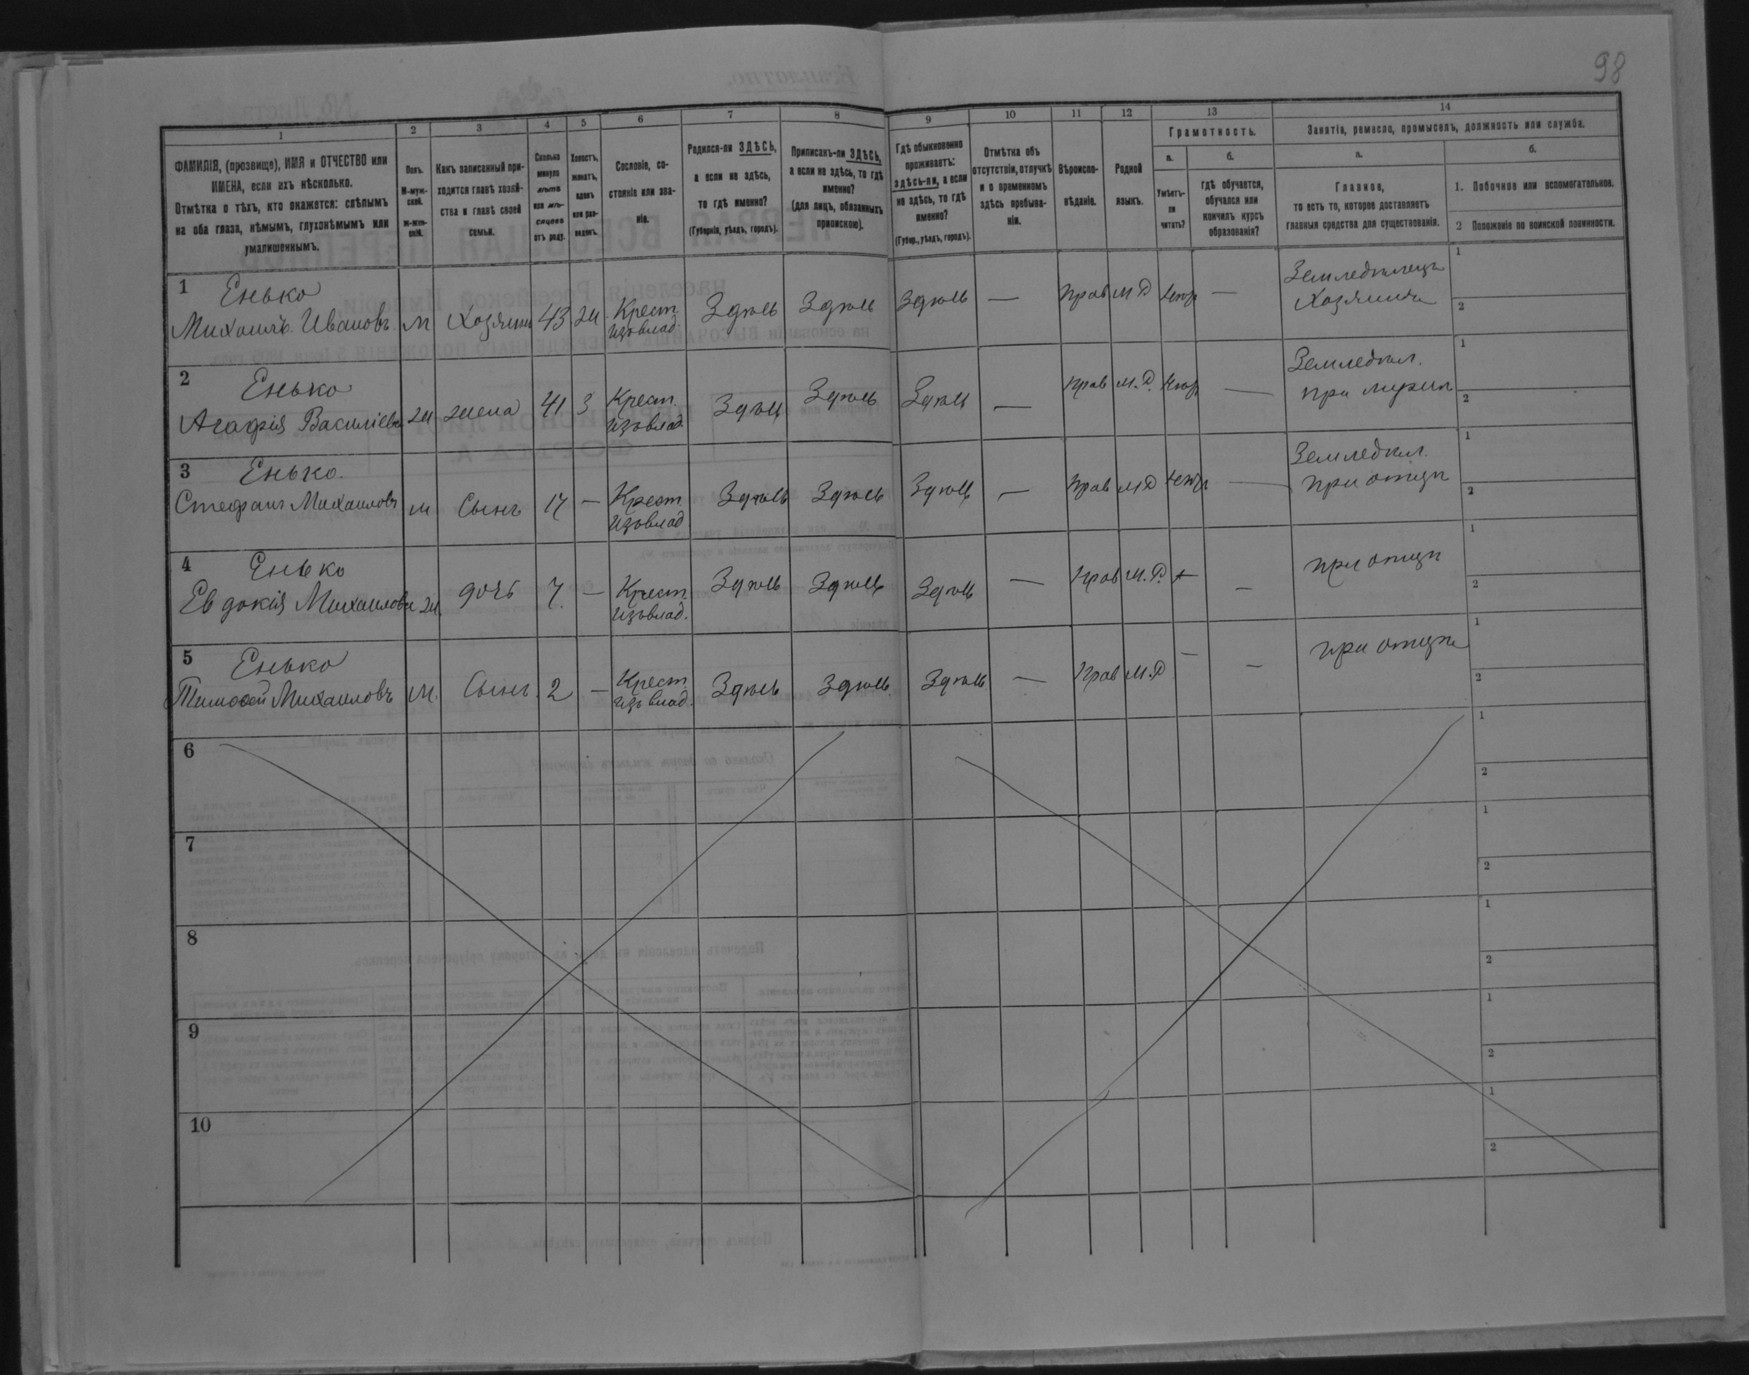 98
1 2 3 4 5 6 7 8 9 10 11 12 13 14
ФАМИЛІЯ, (прозвище), ИМЯ и ОТЧЕСТВО или
ИМЕНА, если ихъ нѣсколько.
Отмѣтка о тѣхъ, кто окажется: слѣпымъ
на оба глаза, нѣмымъ, глухонѣмымъ или
умалишеннымъ.
Полъ.
М-муж-
ской.
Ж-жен-
скій.
Какъ записанный при-
ходится главѣ хозяй-
ства и главѣ своей
семьи.
Сколько
минуло
лѣтъ
или мѣ-
сяцевъ
отъ роду.
Холостъ,
женатъ,
вдовъ
или раз-
веденъ.
Сословіе, со-
стояніе или зва-
ніе.
Родился-ли ЗДѢСЬ,
а если не здѣсь,
то гдѣ именно?
(Губернія, уѣздъ, городъ).
Приписанъ-ли ЗДѢСЬ,
а если не здѣсь, то гдѣ
именно?
(для лицъ, обязанныхъ
припискою).
Гдѣ обыкновенно
проживаетъ:
здѣсь-ли, а если
не здѣсь, то гдѣ
именно?
(Губер., уѣздъ, городъ).
Отмѣтка объ
отсутствіи, отлучкѣ
и о временномъ
здѣсь пребыва-
ніи.
Вѣроиспо-
вѣданіе.
Родной
языкъ.
Грамотность.
а.
Умѣетъ-
ли
читать?
б.
Гдѣ обучается,
обучался или
кончилъ курсъ
образованія?
Занятія, ремесло, промыселъ, должность или служба.
а.
Главное,
то есть то, которое доставляетъ
главныя средства для существованія.
б.
1. Побочное или вспомогательное.
2 Положеніе по воинской повинности.
1 Енько
Михаилъ Ивановъ м Хозяинъ 43 ж Крест. изъ влад. Здѣсь Здѣсь Здѣсь — Прав М.Р. —
Земледѣлецъ
Хозяинъ
1
2
2 Енько
Агафія Василіева ж жена 41 з Крест. изъ влад. Здѣсь Здѣсь Здѣсь — Прав М.Р. —
Земледѣл.
при мужѣ
1
2
3 Енько.
Стефанъ Михаиловъ м Сынъ 17 — Крест. изъ влад. Здѣсь Здѣсь Здѣсь — Прав М.Р. —
Земледѣл.
при отцѣ
1
2
4 Енько
Евдокія Михаилова ж. дочь 7. — Крест. изъ влад. Здѣсь Здѣсь Здѣсь — Прав М.Р. —
при отцѣ
1
2
5 Енько
Тимофей Михаиловъ м. Сынъ 2 — Крест. изъ влад. Здѣсь Здѣсь Здѣсь — Прав М.Р. — —
при отцѣ
1
2
6
1
2
7
1
2
8
1
2
9
1
2
10
1
2